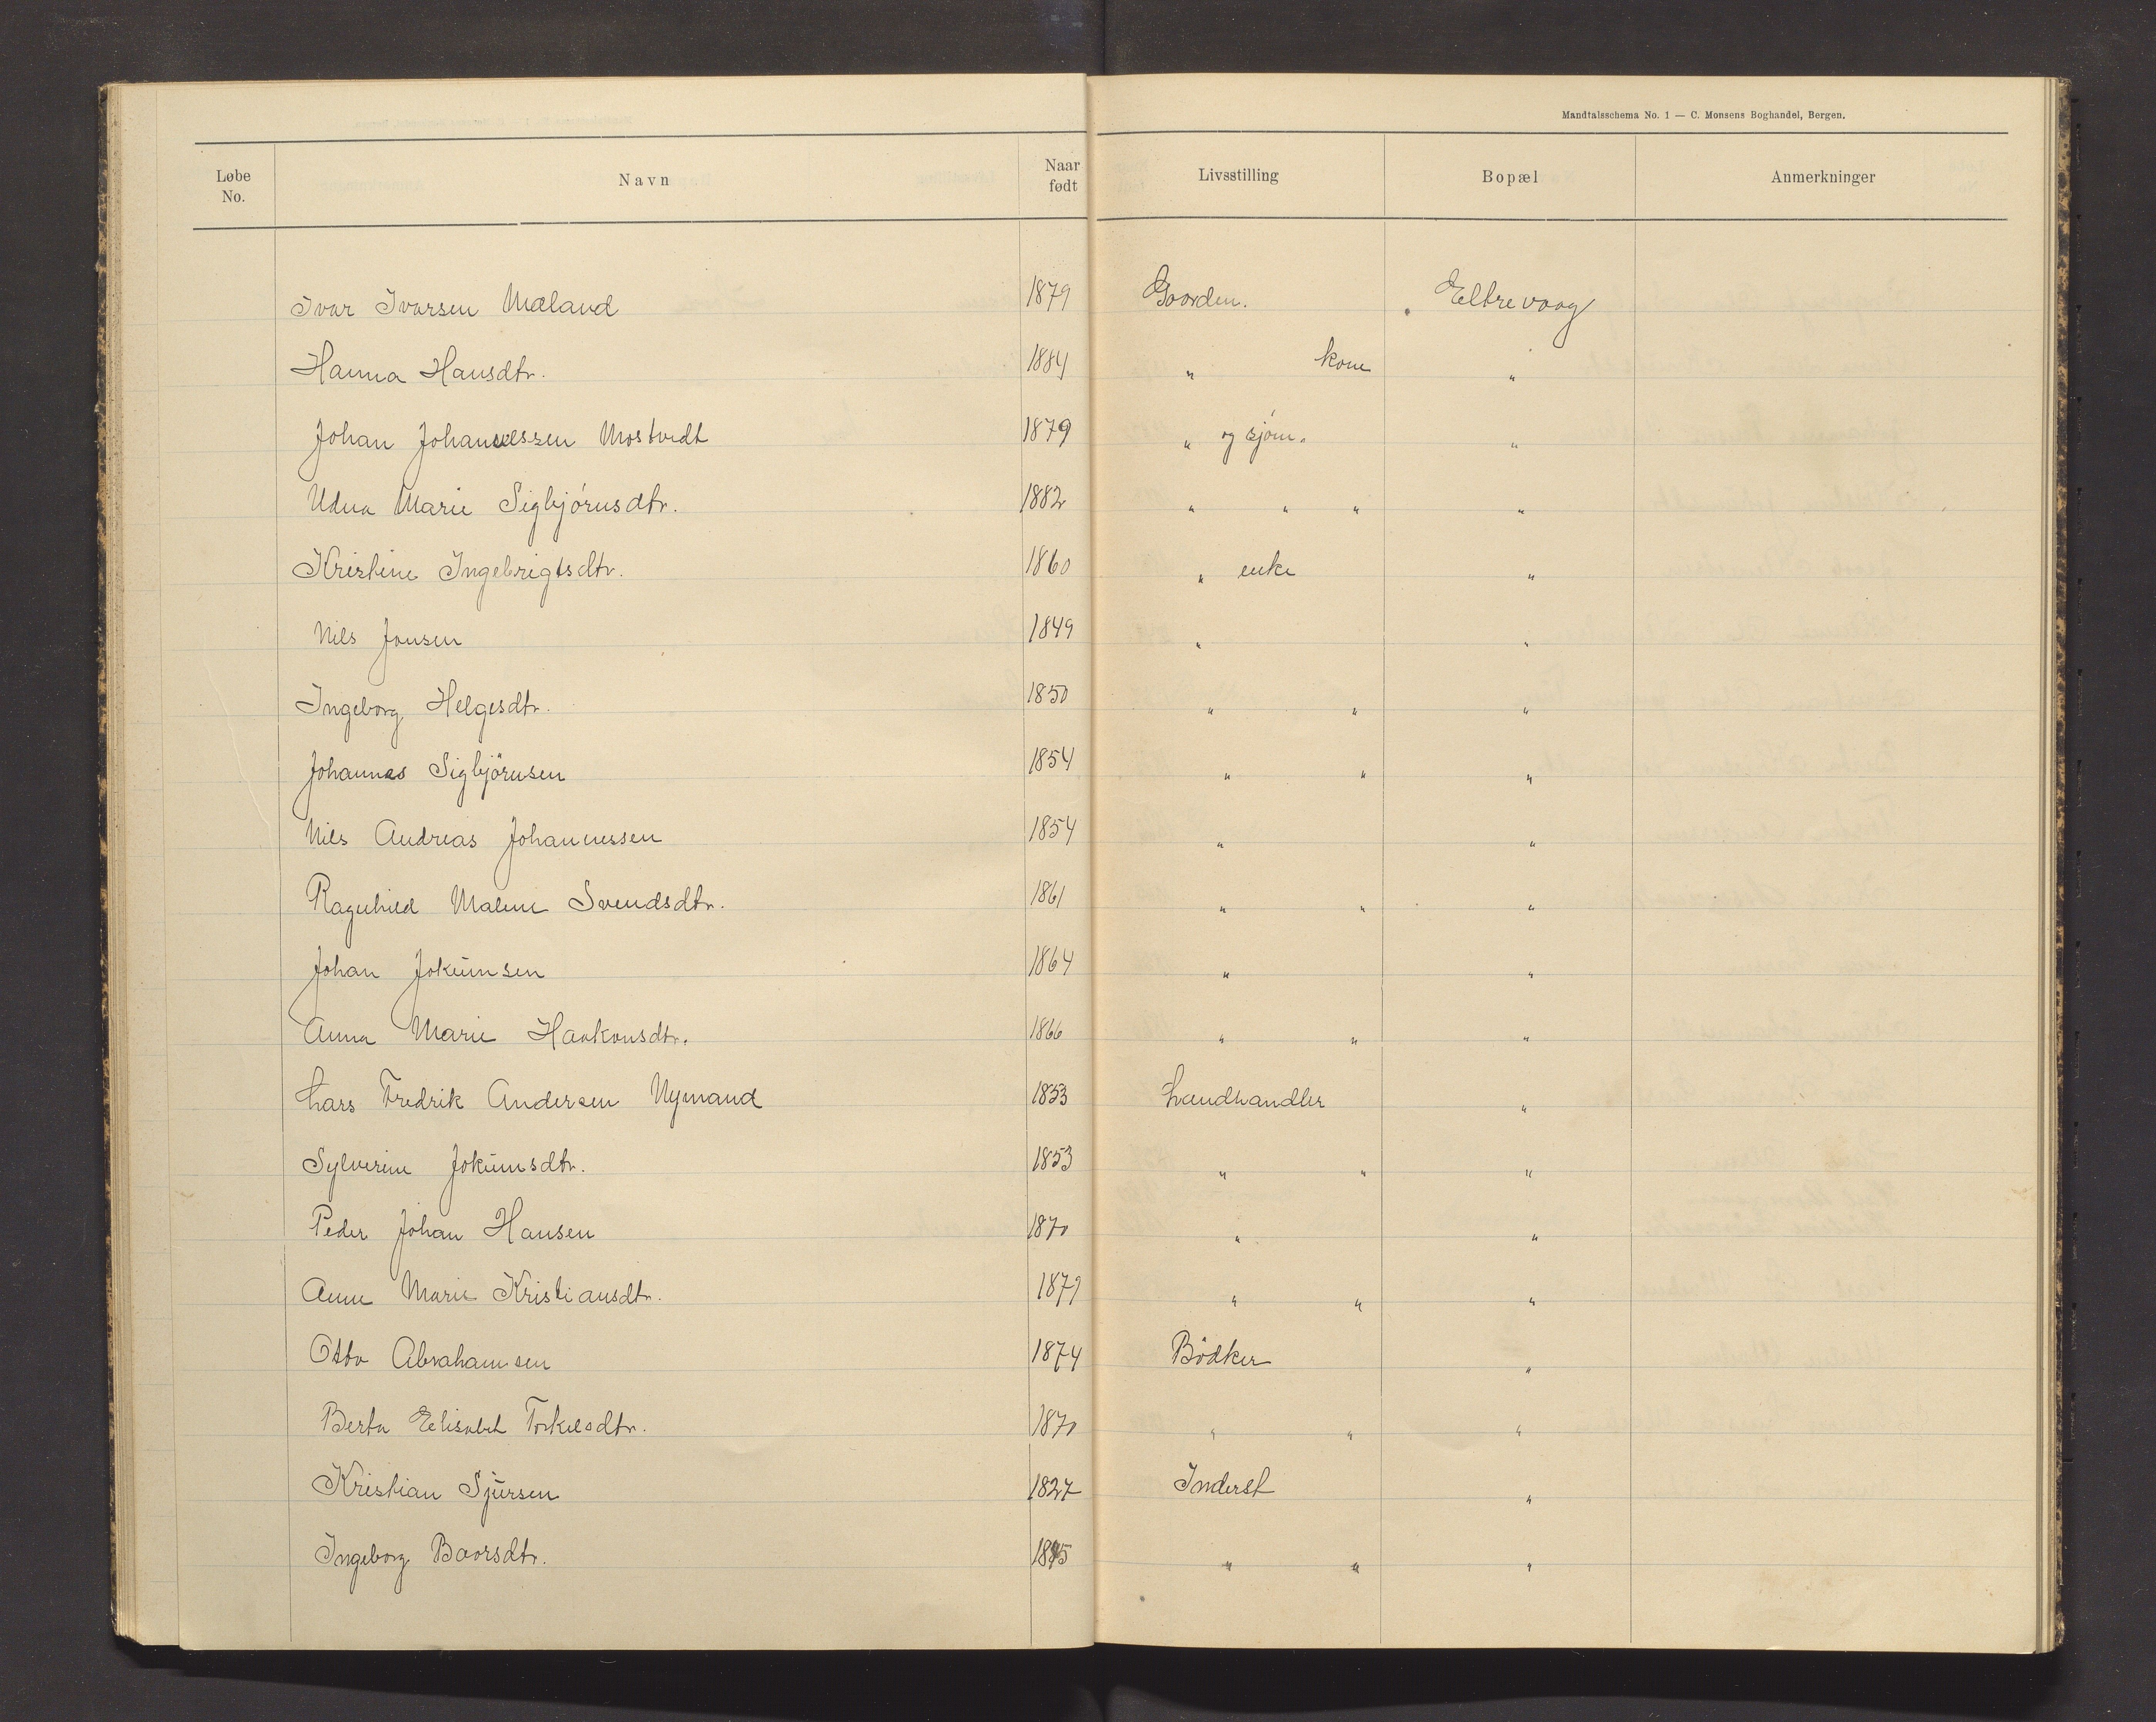 Mandtalsschema No. 1 — C. Monsens Boghandel, Bergen.
Løbe No. Navn Naar født Livsstilling Bopæl Anmerkninger
Ivar Ivarsen Mæland 1879 Gaardm. Eltrevaag
Hanna Hansdtr. 1884 " kone "
Johan Johannessen Mostvedt 1879 " og sjøm. "
Udna Marie Sigbjörnsdtr. 1882 " " " "
Kristine Ingebrigtsdtr. 1860 " enke "
Nils Jonsen 1849 " "
Ingeborg Helgesdtr. 1850 " " "
Johannes Sigbjörnsen 1854 " " "
Nils Andreas Johannessen 1854 " "
Ragnhild Malene Svendsdtr. 1861 " " "
Johan Jokumsen 1864 " "
Anna Marie Haakonsdtr. 1866 " " "
Lars Fredrik Andersen Nymand 1853 Landhandler "
Sylverine Jokumsdtr. 1853 " " "
Peder Johan Hansen 1870 " "
Anne Marie Kristiansdtr. 1879 " " "
Otto Abrahamsen 1874 Bödker "
Berta Elisabet Torkelsdtr. 1870 " " "
Kristian Sjursen 1827 Inderst "
Ingeborg Baarsdtr. " " "